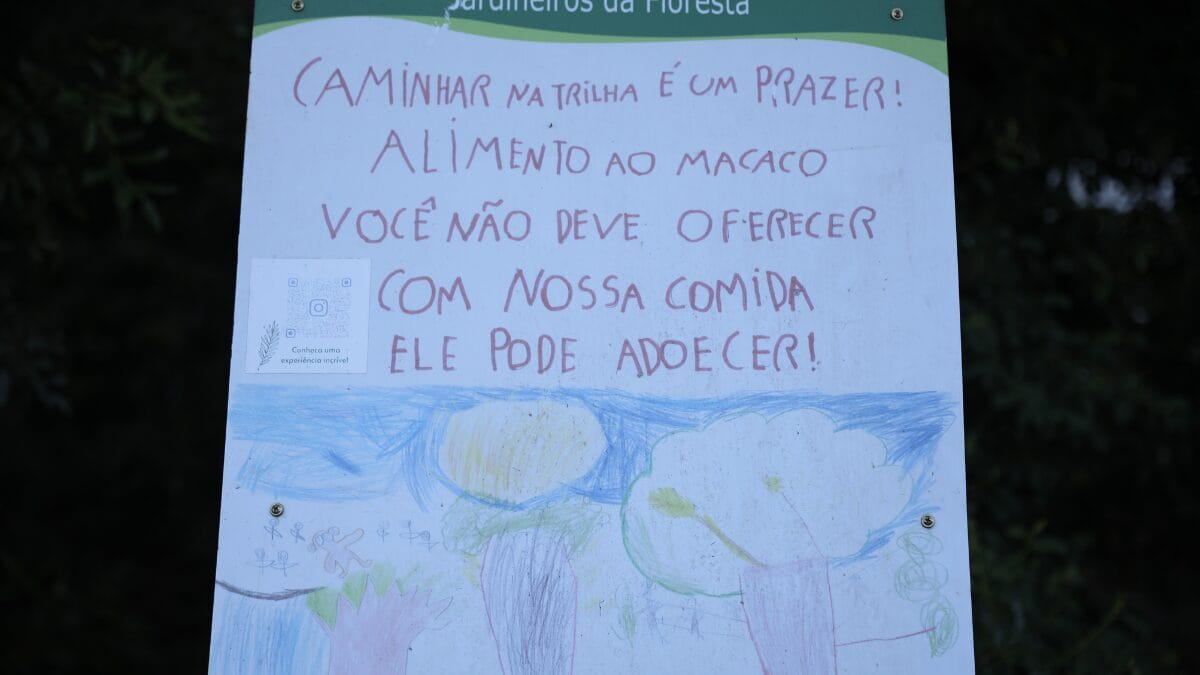 Jardineiros da Floresta
CAMINHAR NA TRILHA É UM PRAZER!
ALIMENTO AO MACACO
VOCÊ NÃO DEVE OFERECER
COM NOSSA COMIDA
ELE PODE ADOECER!
Conheça uma
experiência incrível